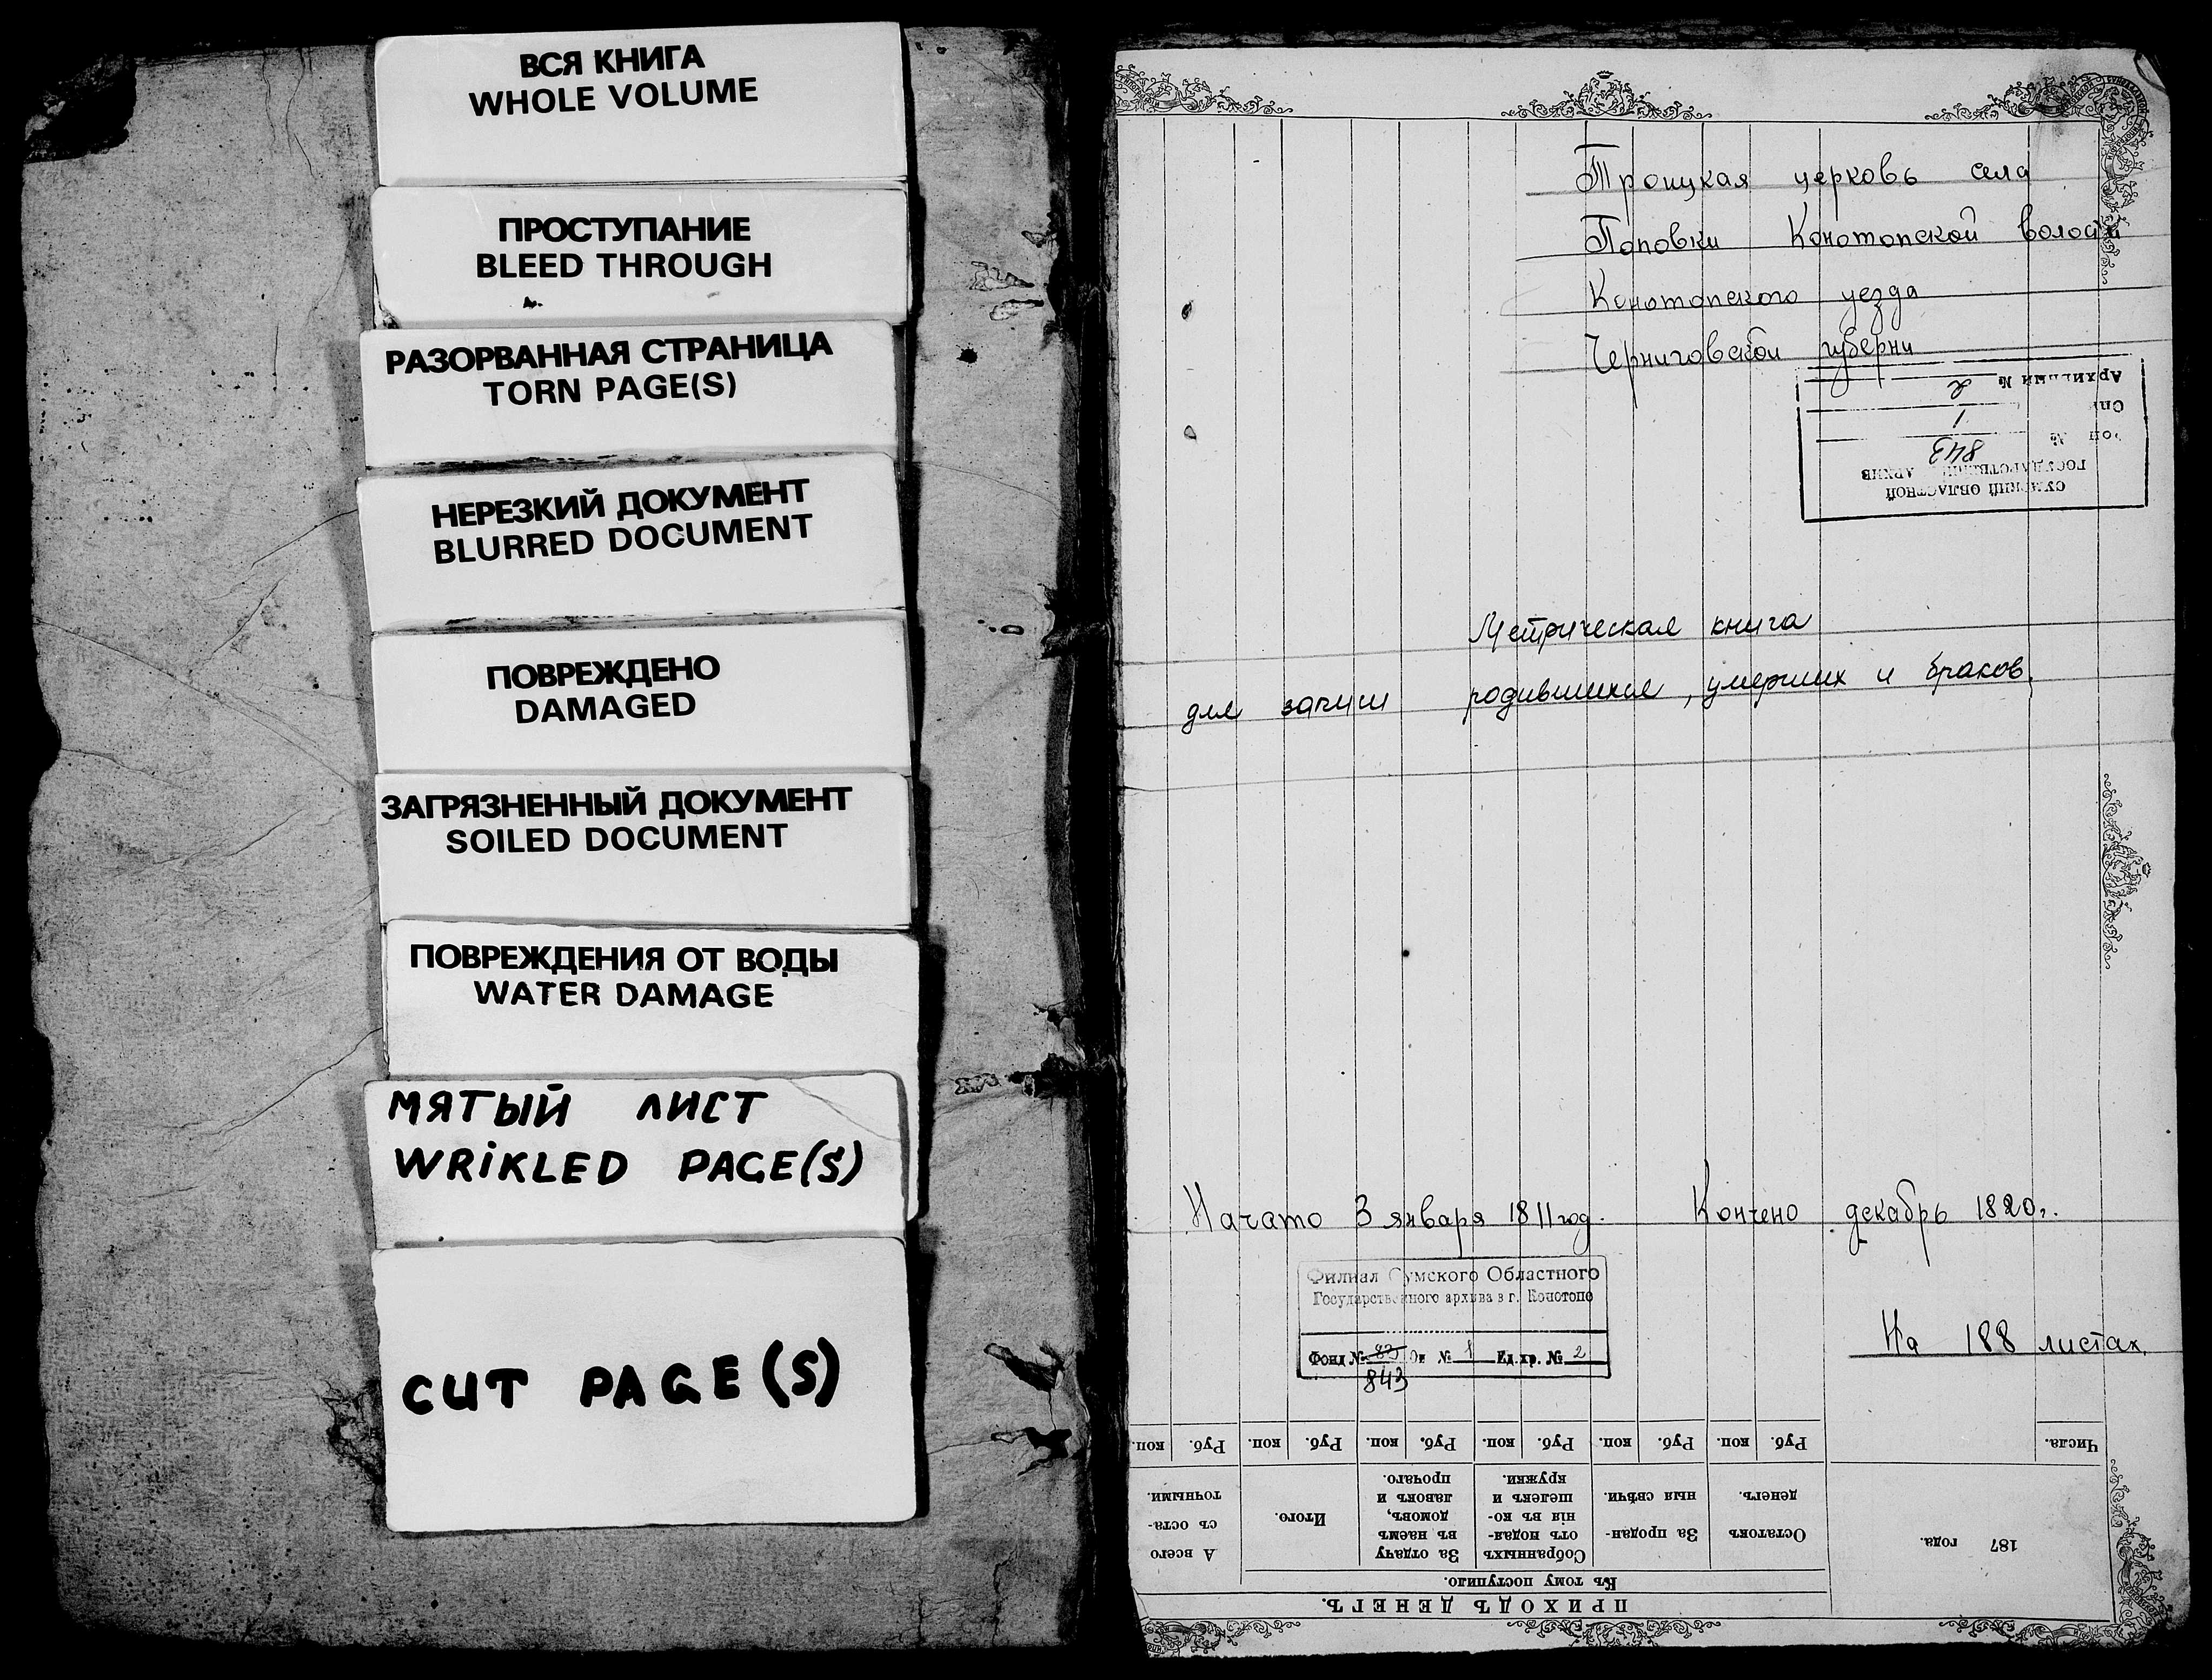 ВСЯ КНИГА
WHOLE VOLUME
ПРОСТУПАНИЕ
BLEED THROUGH
РАЗОРВАННАЯ СТРАНИЦА
TORN PAGE(S)
НЕРЕЗКИЙ ДОКУМЕНТ
BLURRED DOCUMENT
ПОВРЕЖДЕНО
DAMAGED
ЗАГРЯЗНЕННЫЙ ДОКУМЕНТ
SOILED DOCUMENT
ПОВРЕЖДЕНИЯ ОТ ВОДЫ
WATER DAMAGE
МЯТЫЙ ЛИСТ
WRIKLED PAGE(S)
CUT PAGE(S)
Троицкая церковь села
Поповки Конотопской волости
Конотопского уезда
Черниговской губерни
СУМСКИЙ ОБЛАСТНОЙ
ГОСУДАРСТВЕННЫЙ АРХИВ
Фонд № 843
Опись 1
Архивный № 2
Метрическая книга
для записи родившихся, умерших и браков.
Начато 3 января 1811 год. Кончено декабрь 1820 г.
Филиал Сумского Областного
Государственного архива в г. Конотопе
Фонд № 83 Оп № 1 Ед. хр. № 2
843
На 188 листах.
ПРИХОДЪ ДЕНЕГЪ.
Къ тому поступило.
187 года.
Числа.
Остатокъ денегъ.
За продан-ныя свѣчи.
Собранныхъ отъ подая-нія въ ко-шелекъ и кружки.
За отдачу въ наемъ домовъ, лавокъ и прочаго.
Итого.
А всего съ оста-точными.
Руб. коп. Руб. коп. Руб. коп. Руб. коп. Руб. коп. Руб. коп.